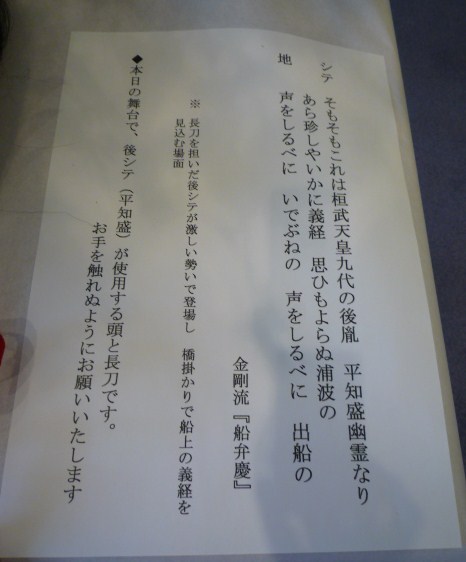 シテ　そもそもこれは桓武天皇九代の後胤　平知盛幽霊なり
あら珍しやいかに義経　思ひもよらぬ浦波の
地　声をしるべに　いでぶねの　声をしるべに　出船の
金剛流『船弁慶』
※　長刀を担いだ後シテが激しい勢いで登場し　橋掛かりで船上の義経を
見込む場面
◆本日の舞台で、後シテ（平知盛）が使用する頭と長刀です。
お手を触れぬようにお願いいたします